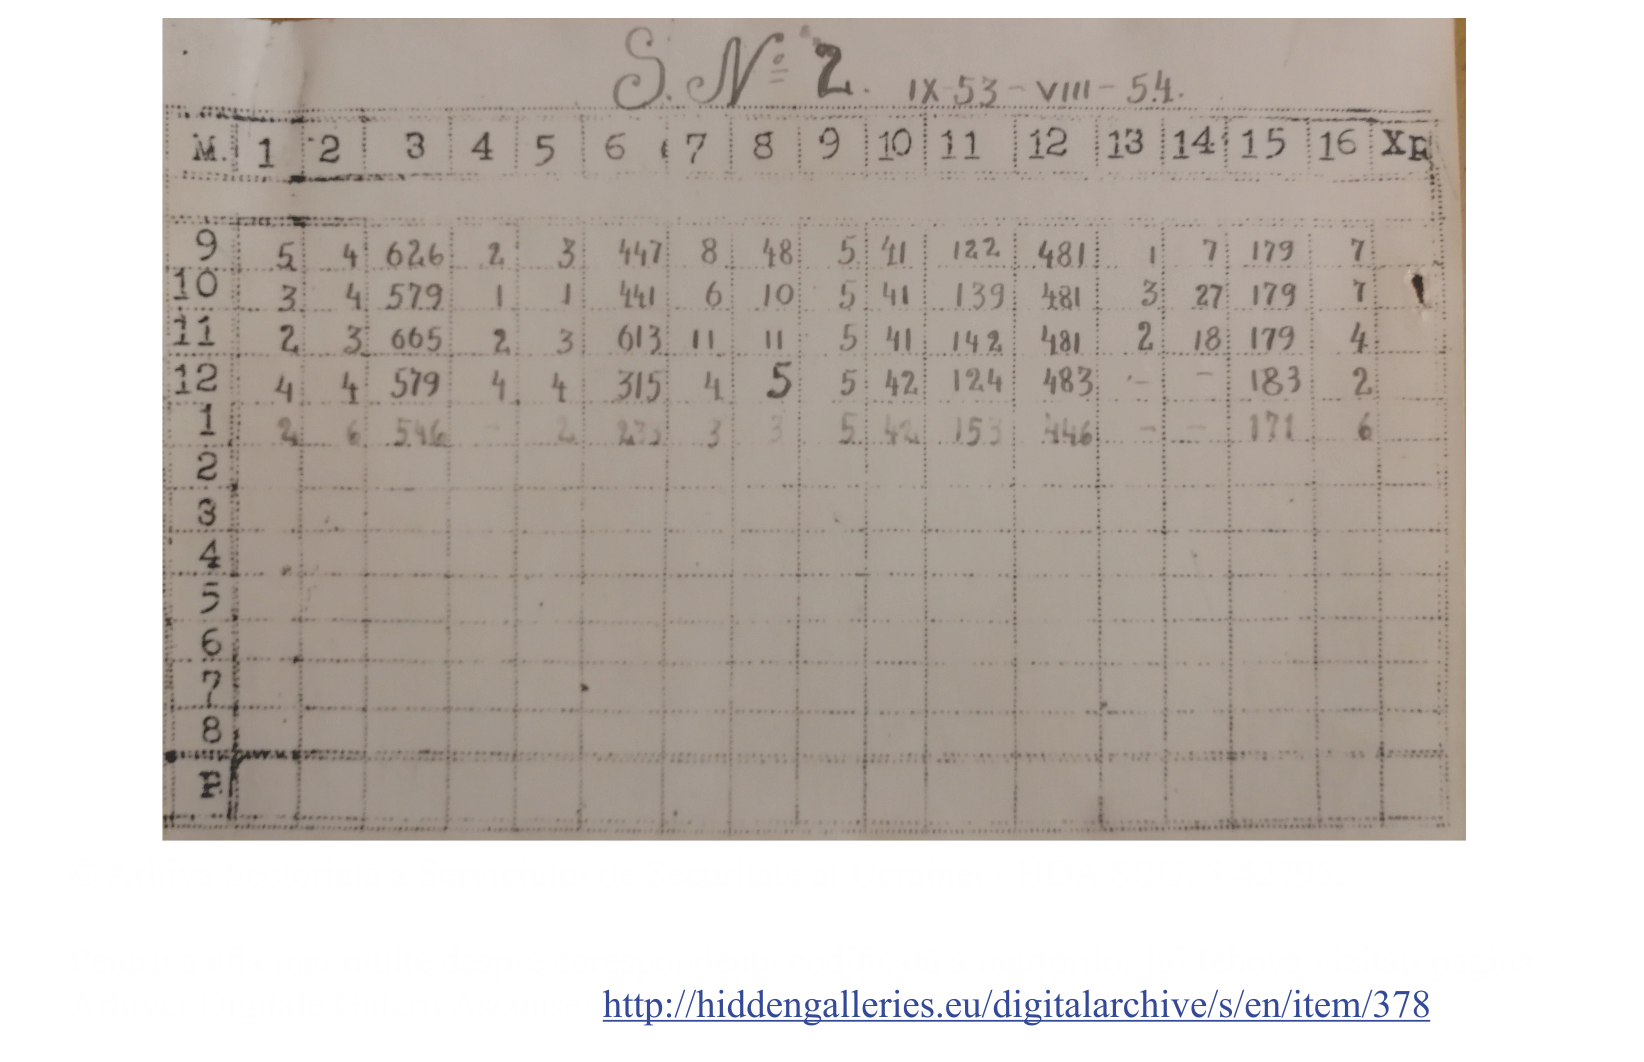 S. Nº 2. IX 53 - VIII - 54.
M. 1 2 3 4 5 6 7 8 9 10 11 12 13 14 15 16
9 5 4 626 2 3 447 8 48 5 41 122 481 1 7 179 7
10 3 4 579 1 1 441 6 10 5 41 139 481 3 27 179 7
11 2 3 665 2 3 613 11 11 5 41 142 481 2 18 179 4
12 4 4 579 4 4 315 4 5 5 42 124 483 - - 183 2
1 2 6 546 - 2 3 3 5 42 153 446 - - 171 6
2
3
4
5
6
7
8
http://hiddengalleries.eu/digitalarchive/s/en/item/378